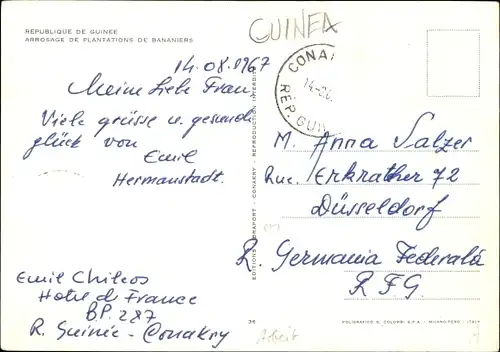 REPUBLIQUE DE GUINEE
ARROSAGE DE PLANTATIONS DE BANANIERS
GUINEA
14.08.1967
Meine liebe Frau,
Viele grüsse u. gesund
glück von
Emil
Hermanstadt.
CONA
14-
REP. GUIN
M. Anna Salzer
Rue. Erkrather 72
Düsseldorf
R. Germania Federală
R.F.G.
Emil Chileos
Hotel de France
BP. 287
R. Guinée - Conakry
EDITIONS - CONAKRY - REPRODUCTION INTERDITE
36
POLIGRAFICO G. COLOMBI S.P.A. - MILANO-PERO - ITALY
Arbeit